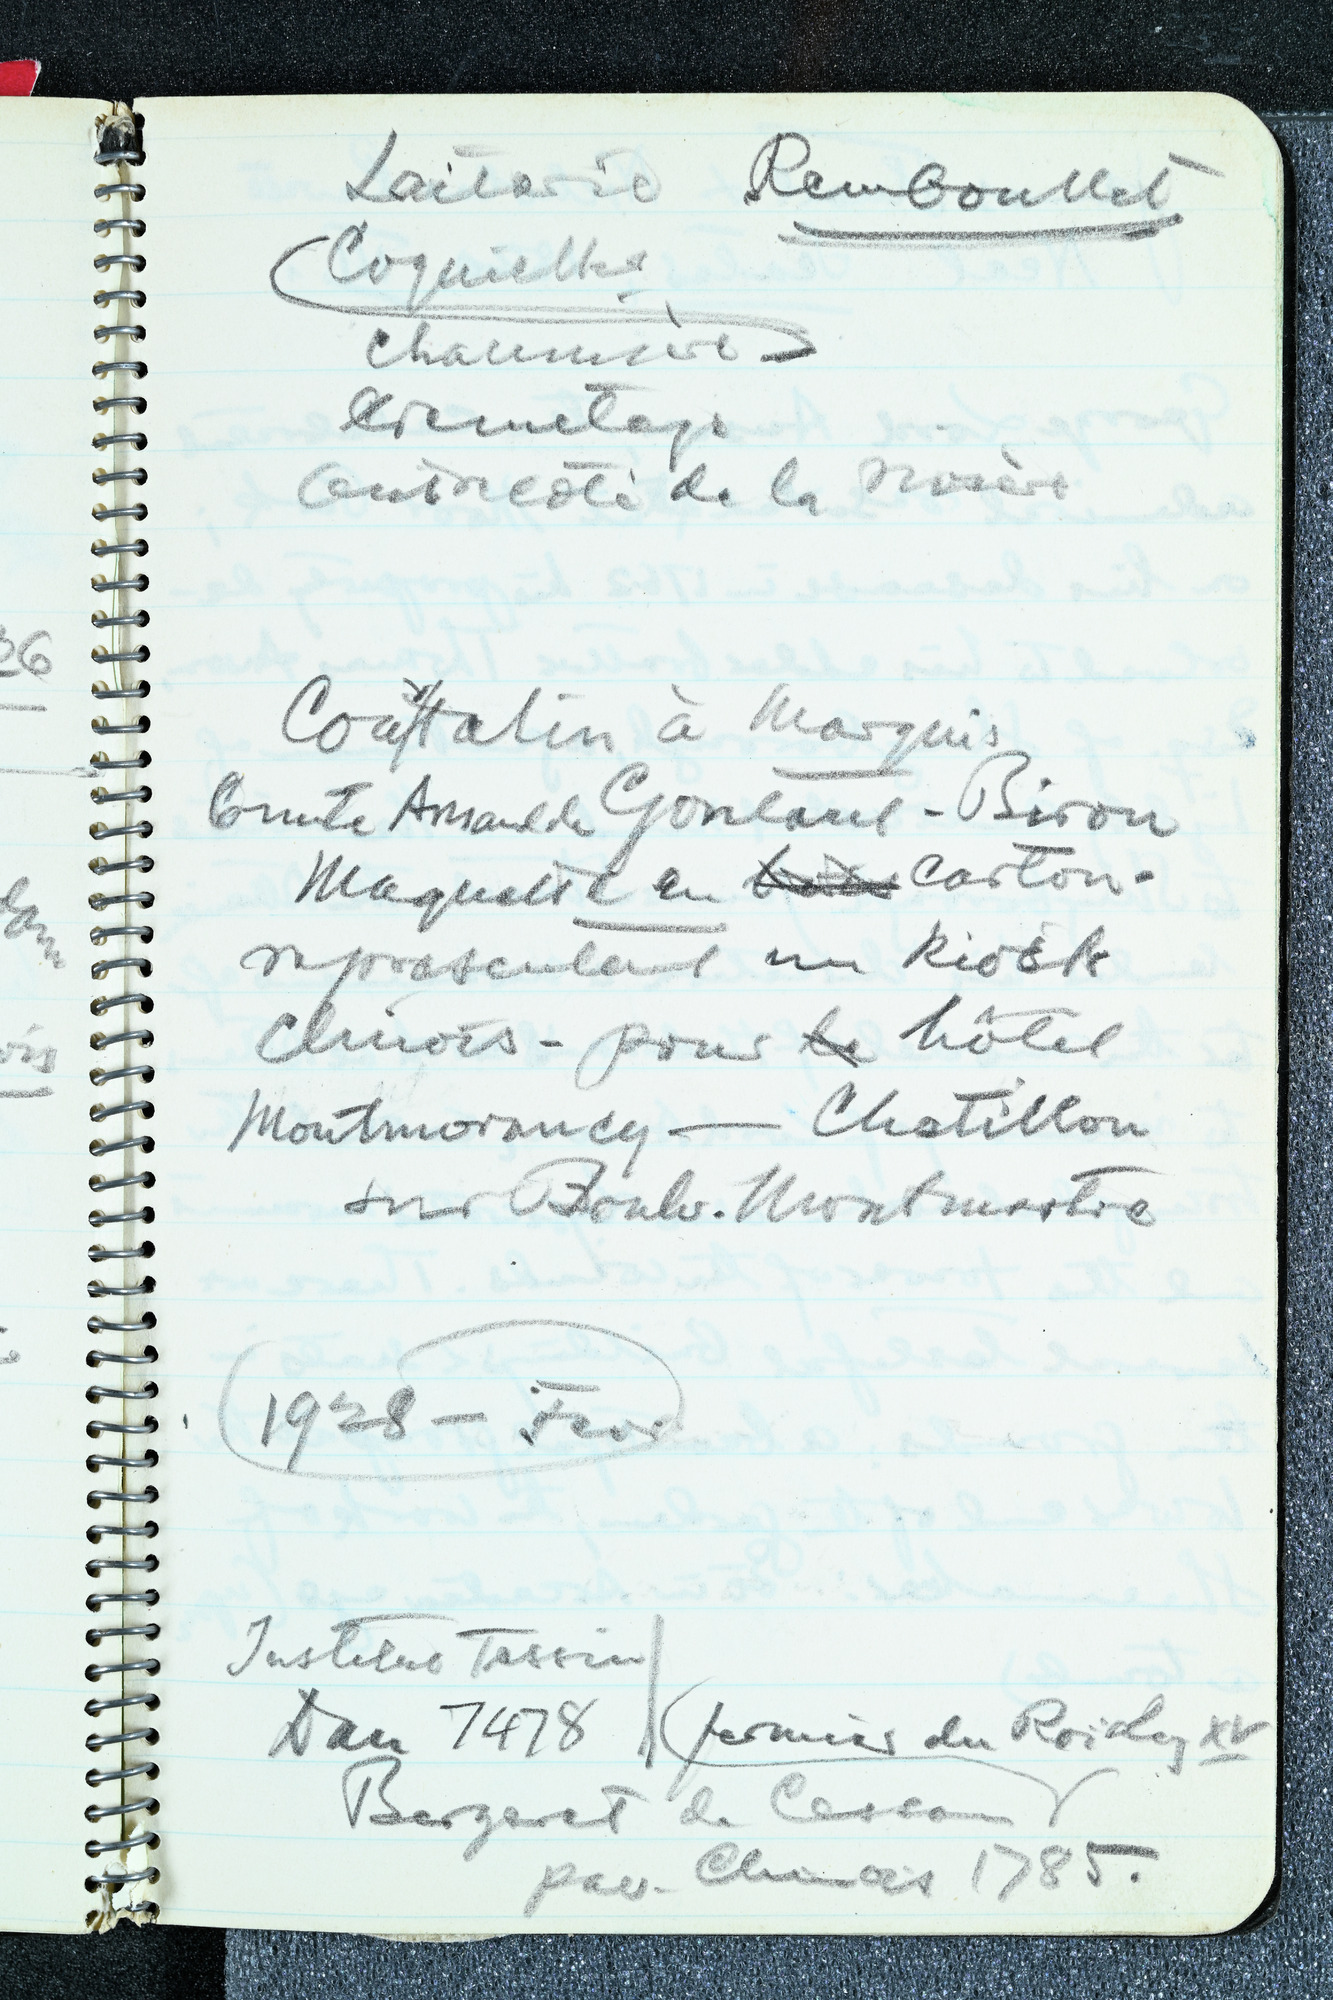 Laiterie Rembouillet
Coquilles
chaumière
Ermetage
autre côté de la rivière
Constatin à Marquis
Comte Arnaud de Gontaud - Biron
Maquette en carton -
representant un kiosk
chinois - pour le hôtel
Montmorancy — Chatillon
sur Boulv. Montmartre
1928 — Fevr
Tassin
Dan 7478 (fermier du Roi Louis XV
Bergeret de Cassan
pav. Chinois 1785.
36